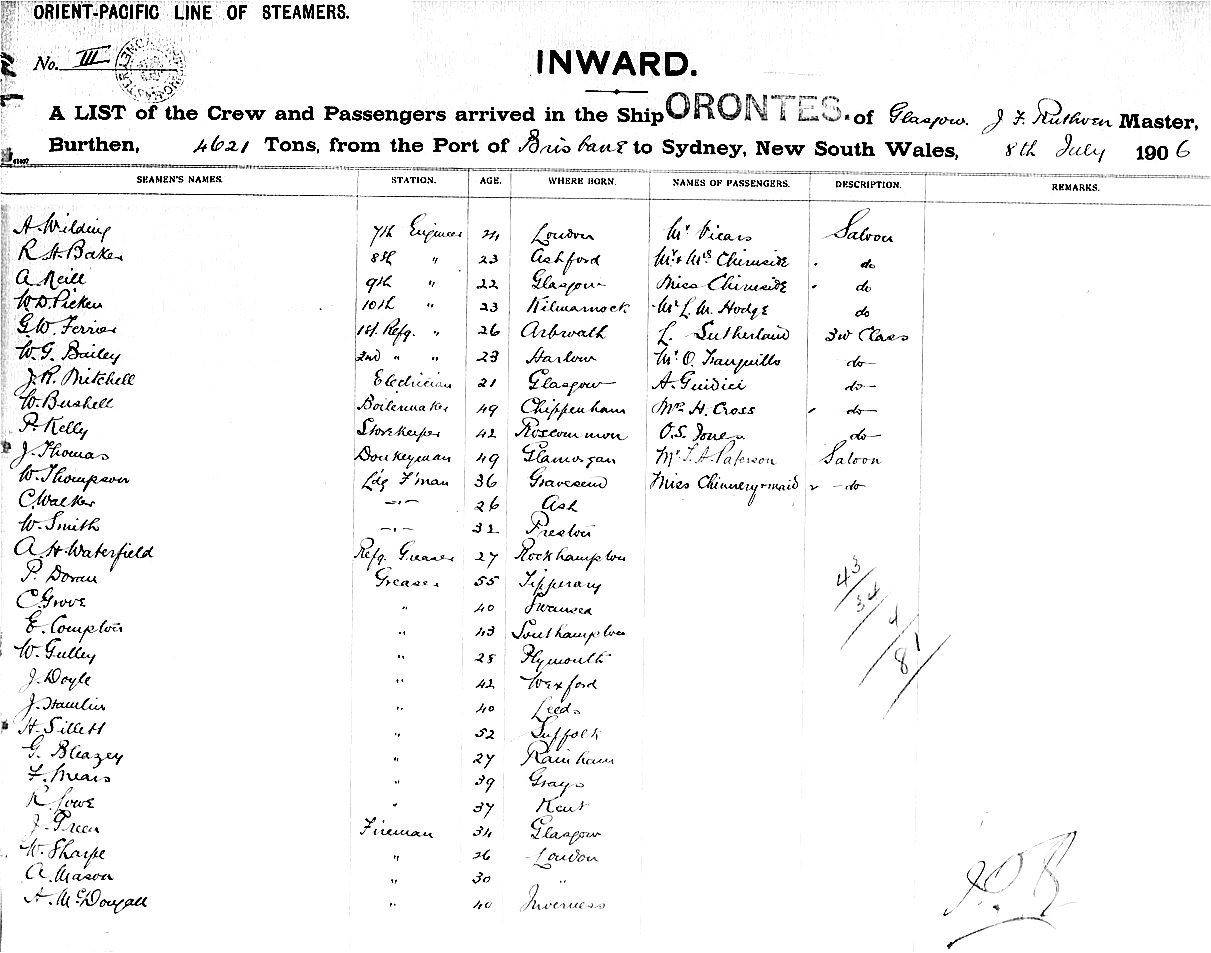 ORIENT-PACIFIC LINE OF STEAMERS.
No. III
INWARD.
A LIST of the Crew and Passengers arrived in the Ship ORONTES. of Glasgow. J F Ruthven Master,
Burthen, 4621 Tons, from the Port of Brisbane to Sydney, New South Wales, 8th July 1906
SEAMEN'S NAMES. STATION. AGE. WHERE BORN. NAMES OF PASSENGERS. DESCRIPTION. REMARKS.
A. Wilding 7th Engineer 24 London Mr Vicars Saloon
R H Baker 8th " 23 Ashford Mr & Mrs Chirnside do
A Neill 9th " 22 Glasgow Miss Chirnside do
W. D. Picken 10th " 23 Kilmarnock Mr L. M. Hodge do
G. W. Ferrier 1st. Refg. " 26 Arbroath L. Sutherland 3rd Class
W. G. Bailey 2nd " " 23 Harlow Mr O. Tranquillo do
J. R. Mitchell Electrician 21 Glasgow A. Guidici do
W. Bushell Boilermaker 49 Chippenham Mrs H. Cross do
P. Kelly Storekeeper 42 Roscommon O. S. Jones do
J. Thomas Donkeyman 49 Glamorgan Mr T. A. Paterson Saloon
W. Thompson Ldg F'man 36 Gravesend Miss Chinnery & maid do
C. Walker —"— 26 Ash
W. Smith —"— 32 Preston
A. H Waterfield Refg. Greaser 27 Rockhampton
P. Doran Greaser 55 Tipperary
C. Grove " 40 Swansea
E. Compton " 43 Southampton
W. Gulley " 28 Plymouth
J. Doyle " 42 Wexford
J. Hamlin " 40 Leeds
H. Sillett " 52 Suffolk
G. Bleazey " 27 Rainham
F. Mears " 39 Grays
R. Lowe " 37 Kent
J. Green Fireman 34 Glasgow
W. Sharpe " 26 London
A. Mason " 30 "
A. McDougall " 40 Inverness
43
34
4
81